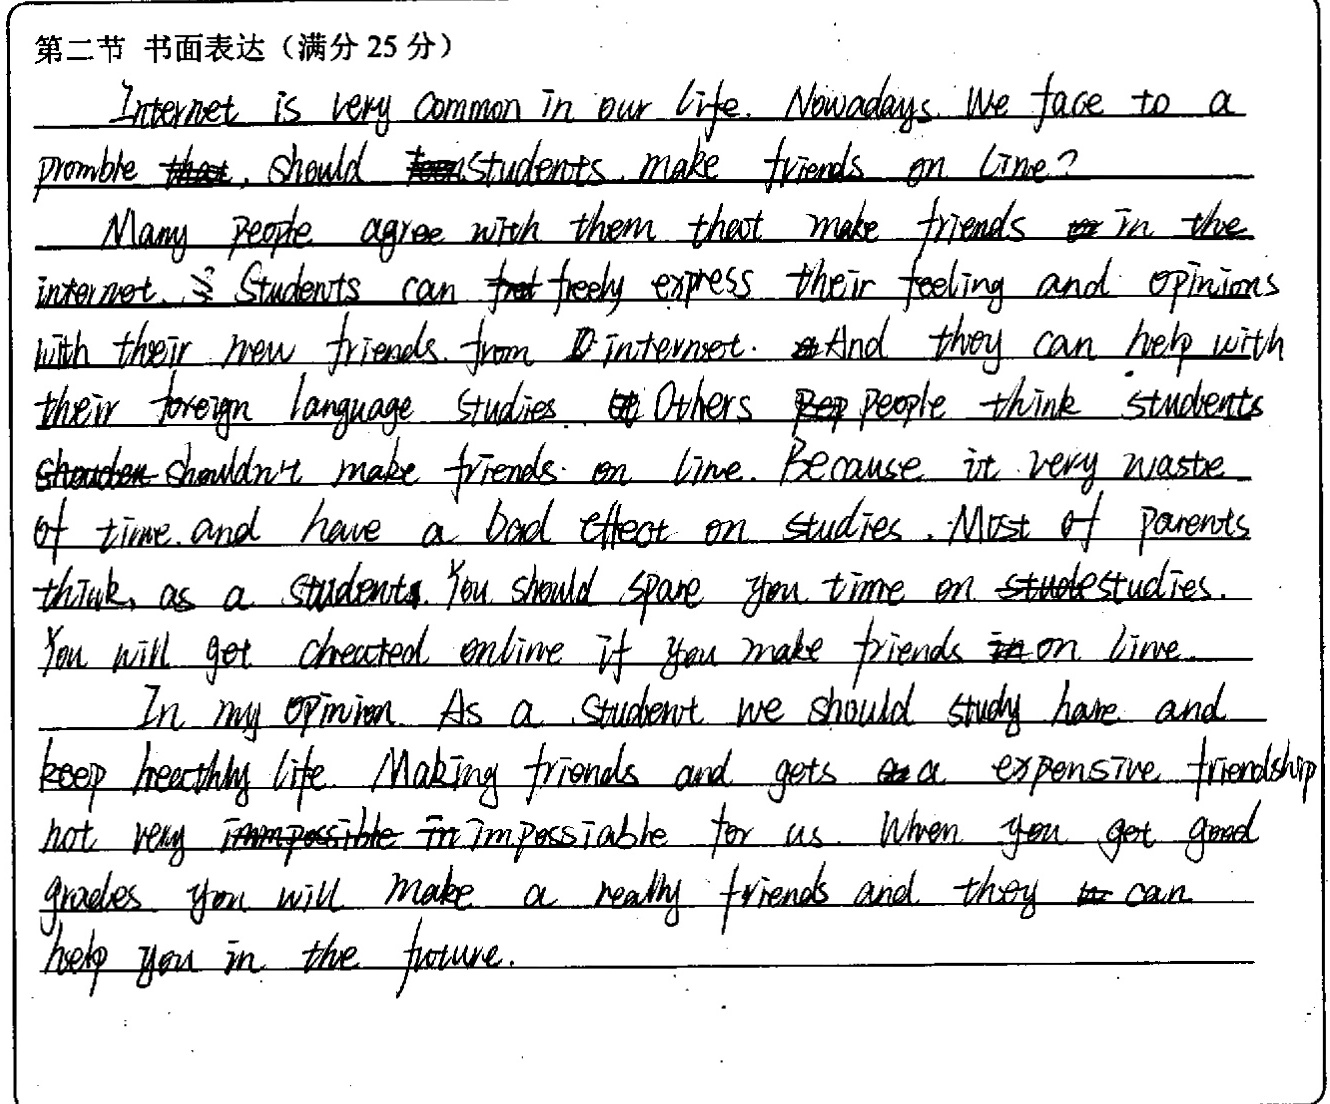 第二节 书面表达（满分 25 分）
Internet is very common in our life. Nowadays. We face to a
promble that, should students make friends on line?
Many people agree with them that make friends in the
internet. Students can freely express their feeling and opinions
with their new friends from internet. And they can help with
their foreign language studies. Others people think students
shouldn't make friends on line. Because it very waste
of time and have a bad effect on studies. Most of parents
think, as a students. You should spare you time on studies.
You will get cheated online if you make friends on line.
In my opinion As a student we should study hare and
keep hearthly life. Making friends and gets a expensive friendship
not very impossiable for us. When you get good
grades you will make a really friends and they can
help you in the future.